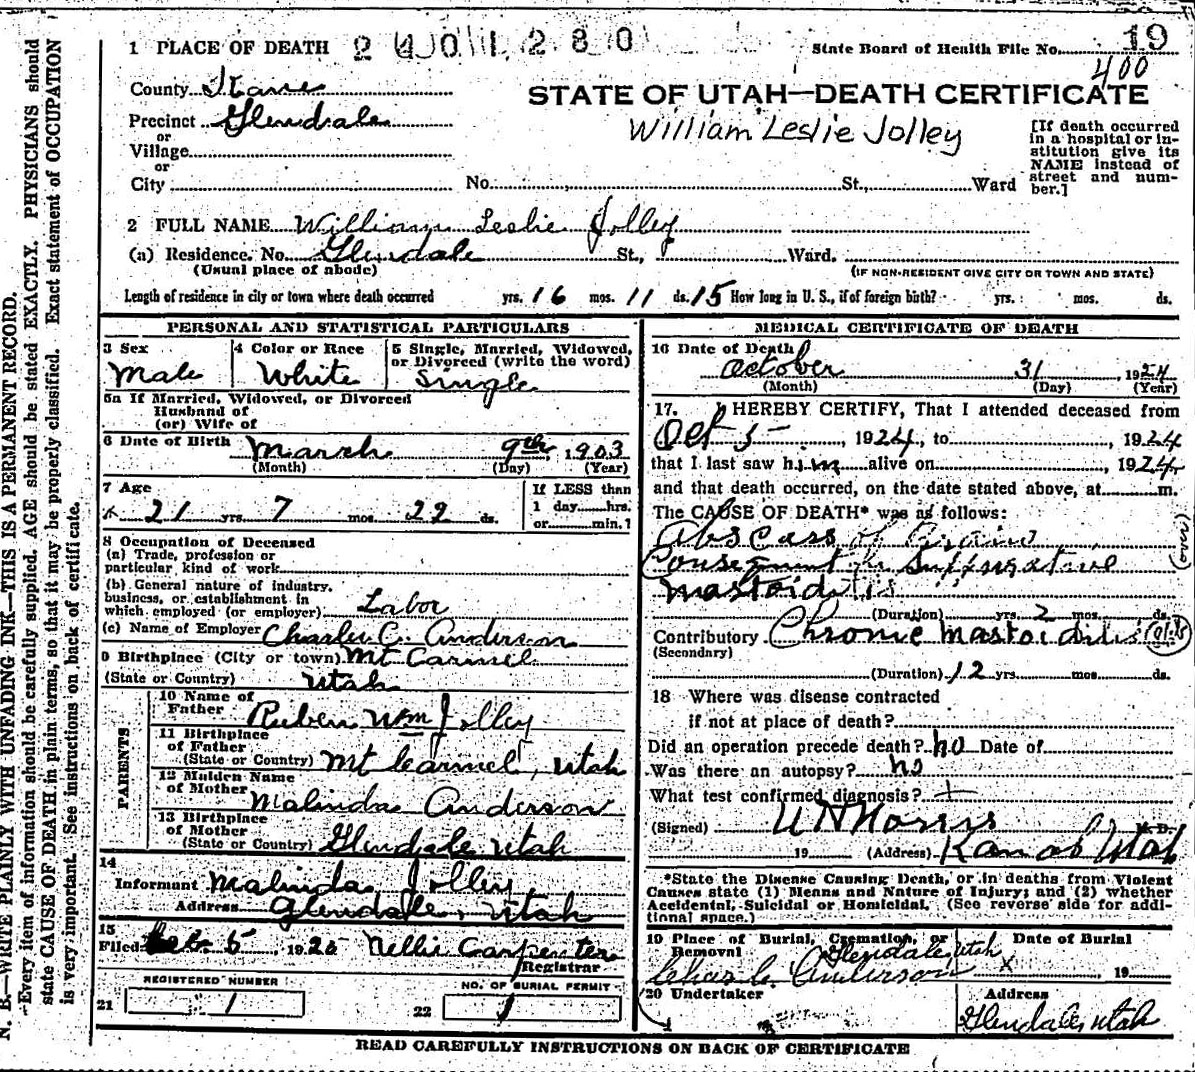 1 PLACE OF DEATH 2401280 State Board of Health File No. 19
400
County Kane
STATE OF UTAH—DEATH CERTIFICATE
Precinct Glendale
William Leslie Jolley
or
Village
or
City No. St., Ward
[If death occurred
in a hospital or in-
stitution give its
NAME instead of
street and num-
ber.]
2 FULL NAME William Leslie Jolley
(a) Residence. No. Glendale St., Ward.
(Usual place of abode) (IF NON-RESIDENT GIVE CITY OR TOWN AND STATE)
Length of residence in city or town where death occurred yrs. 16 mos. 11 ds. 15 How long in U. S., if of foreign birth? yrs. mos. ds.
PERSONAL AND STATISTICAL PARTICULARS
3 Sex 4 Color or Race 5 Single, Married, Widowed,
or Divorced (write the word)
Male White Single
5a If Married, Widowed, or Divorced
Husband of
(or) Wife of
6 Date of Birth March 9th, 1903
(Month) (Day) (Year)
7 Age If LESS than
21 yrs. 7 mos. 22 ds. 1 day hrs.
or min.?
8 Occupation of Deceased
(a) Trade, profession or
particular kind of work
(b) General nature of industry,
business, or establishment in
which employed (or employer) Labor
(c) Name of Employer Charles C. Anderson
9 Birthplace (City or town) Mt Carmel
(State or Country) Utah
PARENTS
10 Name of
Father Ruben Wm Jolley
11 Birthplace
of Father
(State or Country) Mt Carmel, Utah
12 Maiden Name
of Mother Malinda Anderson
13 Birthplace
of Mother
(State or Country) Glendale Utah
14
Informant Malinda Jolley
Address Glendale, Utah
15
Filed 5, 1925 Nellie Carpenter
Registrar
REGISTERED NUMBER NO. OF BURIAL PERMIT
21 1 22 1
MEDICAL CERTIFICATE OF DEATH
16 Date of Death
October 31, 1924
(Month) (Day) (Year)
17. I HEREBY CERTIFY, That I attended deceased from
Oct 5, 1924, to , 1924
that I last saw him alive on , 1924
and that death occurred, on the date stated above, at m.
The CAUSE OF DEATH* was as follows:
Abscess of Brain
Consequent to Suppurative
Mastoiditis
(over)
(Duration) yrs. 2 mos. ds.
Contributory Chronic Mastoiditis
(Secondary)
(Duration) 12 yrs. mos. ds.
18 Where was disease contracted
if not at place of death?
Did an operation precede death? no Date of
Was there an autopsy? no
What test confirmed diagnosis? +
(Signed) Norris M. D.
19 (Address) Kanab Utah
*State the Disease Causing Death, or in deaths from Violent
Causes state (1) Means and Nature of Injury; and (2) whether
Accidental, Suicidal or Homicidal. (See reverse side for addi-
tional space.)
19 Place of Burial, Cremation, or Date of Burial
Removal Glendale, Utah
Chas C. Anderson X , 19
20 Undertaker Address
Glendale, Utah
READ CAREFULLY INSTRUCTIONS ON BACK OF CERTIFICATE
N. B.—WRITE PLAINLY WITH UNFADING INK—THIS IS A PERMANENT RECORD.
Every item of information should be carefully supplied. AGE should be stated EXACTLY. PHYSICIANS should
state CAUSE OF DEATH in plain terms, so that it may be properly classified. Exact statement of OCCUPATION
is very important. See instructions on back of certificate.